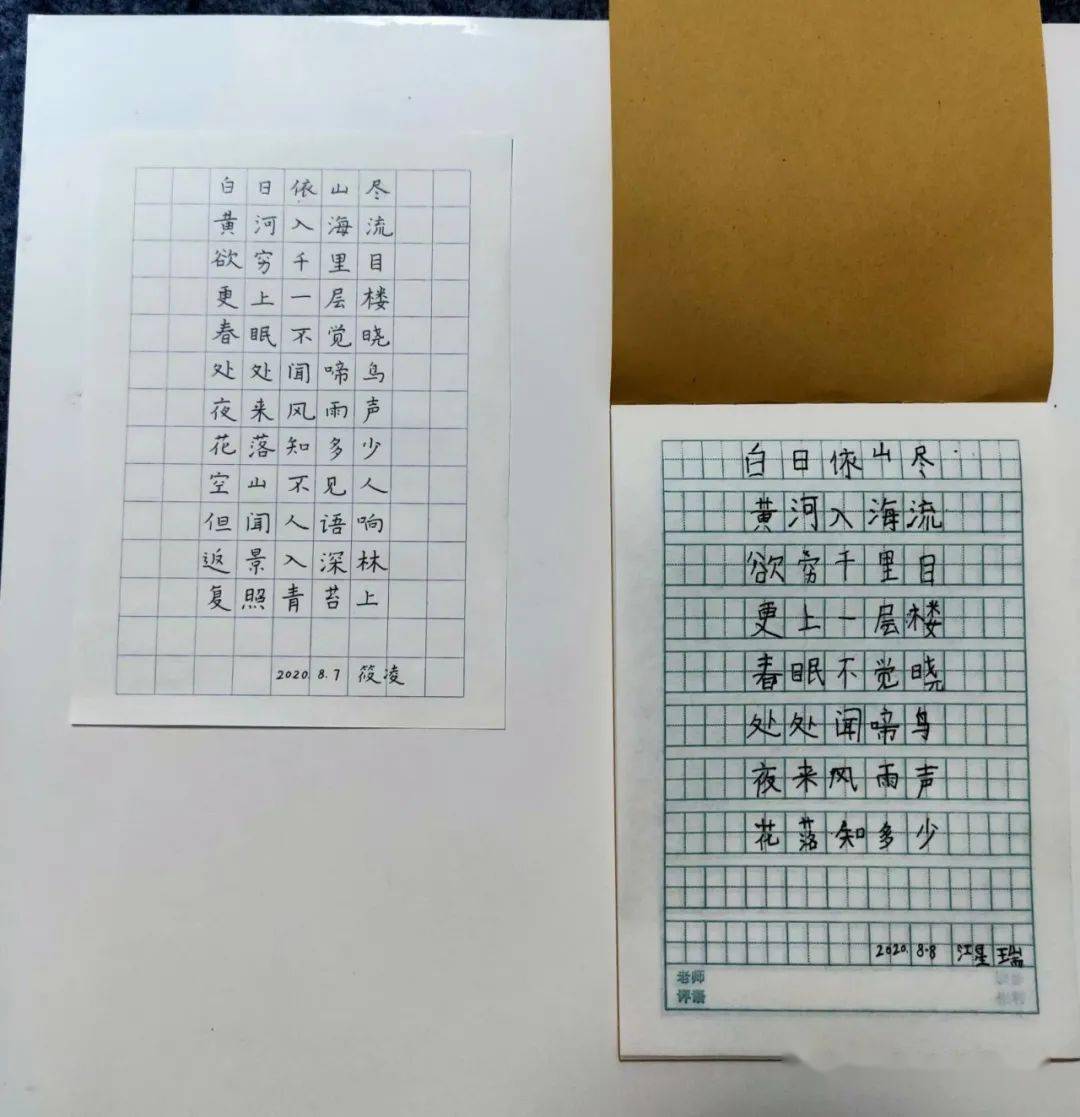 白日依山尽
黄河入海流
欲穷千里目
更上一层楼
春眠不觉晓
处处闻啼鸟
夜来风雨声
花落知多少
空山不见人
但闻人语响
返景入深林
复照青苔上
2020.8.7 筱凌
白日依山尽
黄河入海流
欲穷千里目
更上一层楼
春眠不觉晓
处处闻啼鸟
夜来风雨声
花落知多少
2020.8.8 江星瑞
老师
评语